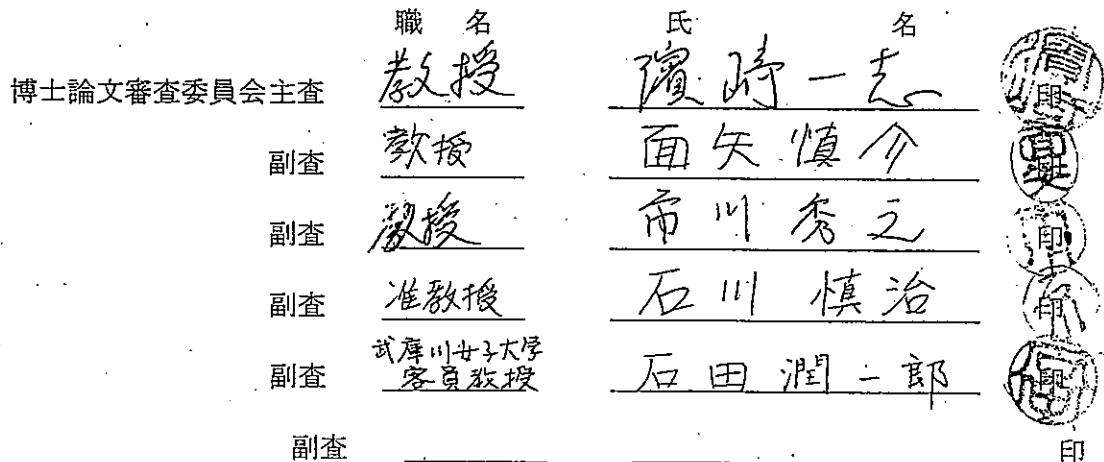 職 名 氏 名
博士論文審査委員会主査 教授 濵﨑一志 印
副査 教授 面矢慎介
副査 教授 市川秀之 印
副査 准教授 石川 慎治 印
副査 武庫川女子大学
客員教授 石田潤一郎
副査 印